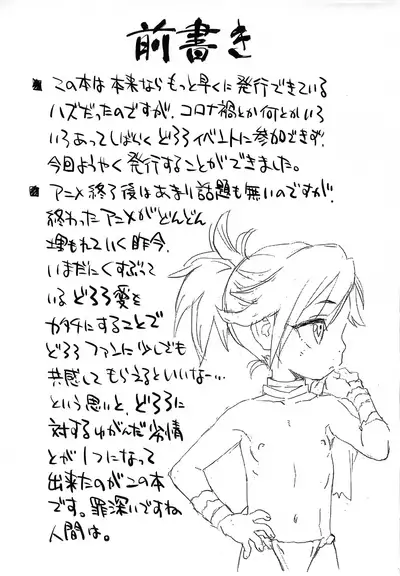 前書き
この本は本来ならもっと早くに発行できている
ハズだったのですが、コロナ禍とか何とかいろ
いろあってしばらくどろろイベントに参加できず、
今回ようやく発行することができました。
アニメ終了後はあまり話題も無いのですが、
終わったアニメがどんどん
埋もれていく昨今、
いまだにくすぶって
いるどろろ愛を
カタチにすることで
どろろファンに少しでも
共感してもらえるといいなー…
という思いと、どろろに
対するゆがんだ劣情
とが1つになって
出来たのがこの本
です。罪深いですね
人間は。